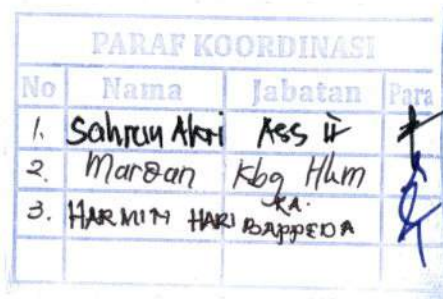 PARAF KOORDINASI
No Nama Jabatan Para
1. Sahrun Akri Ass II
2. Marzan Kbg Hkm
3. HARMIN HARI KA. BAPPEDA